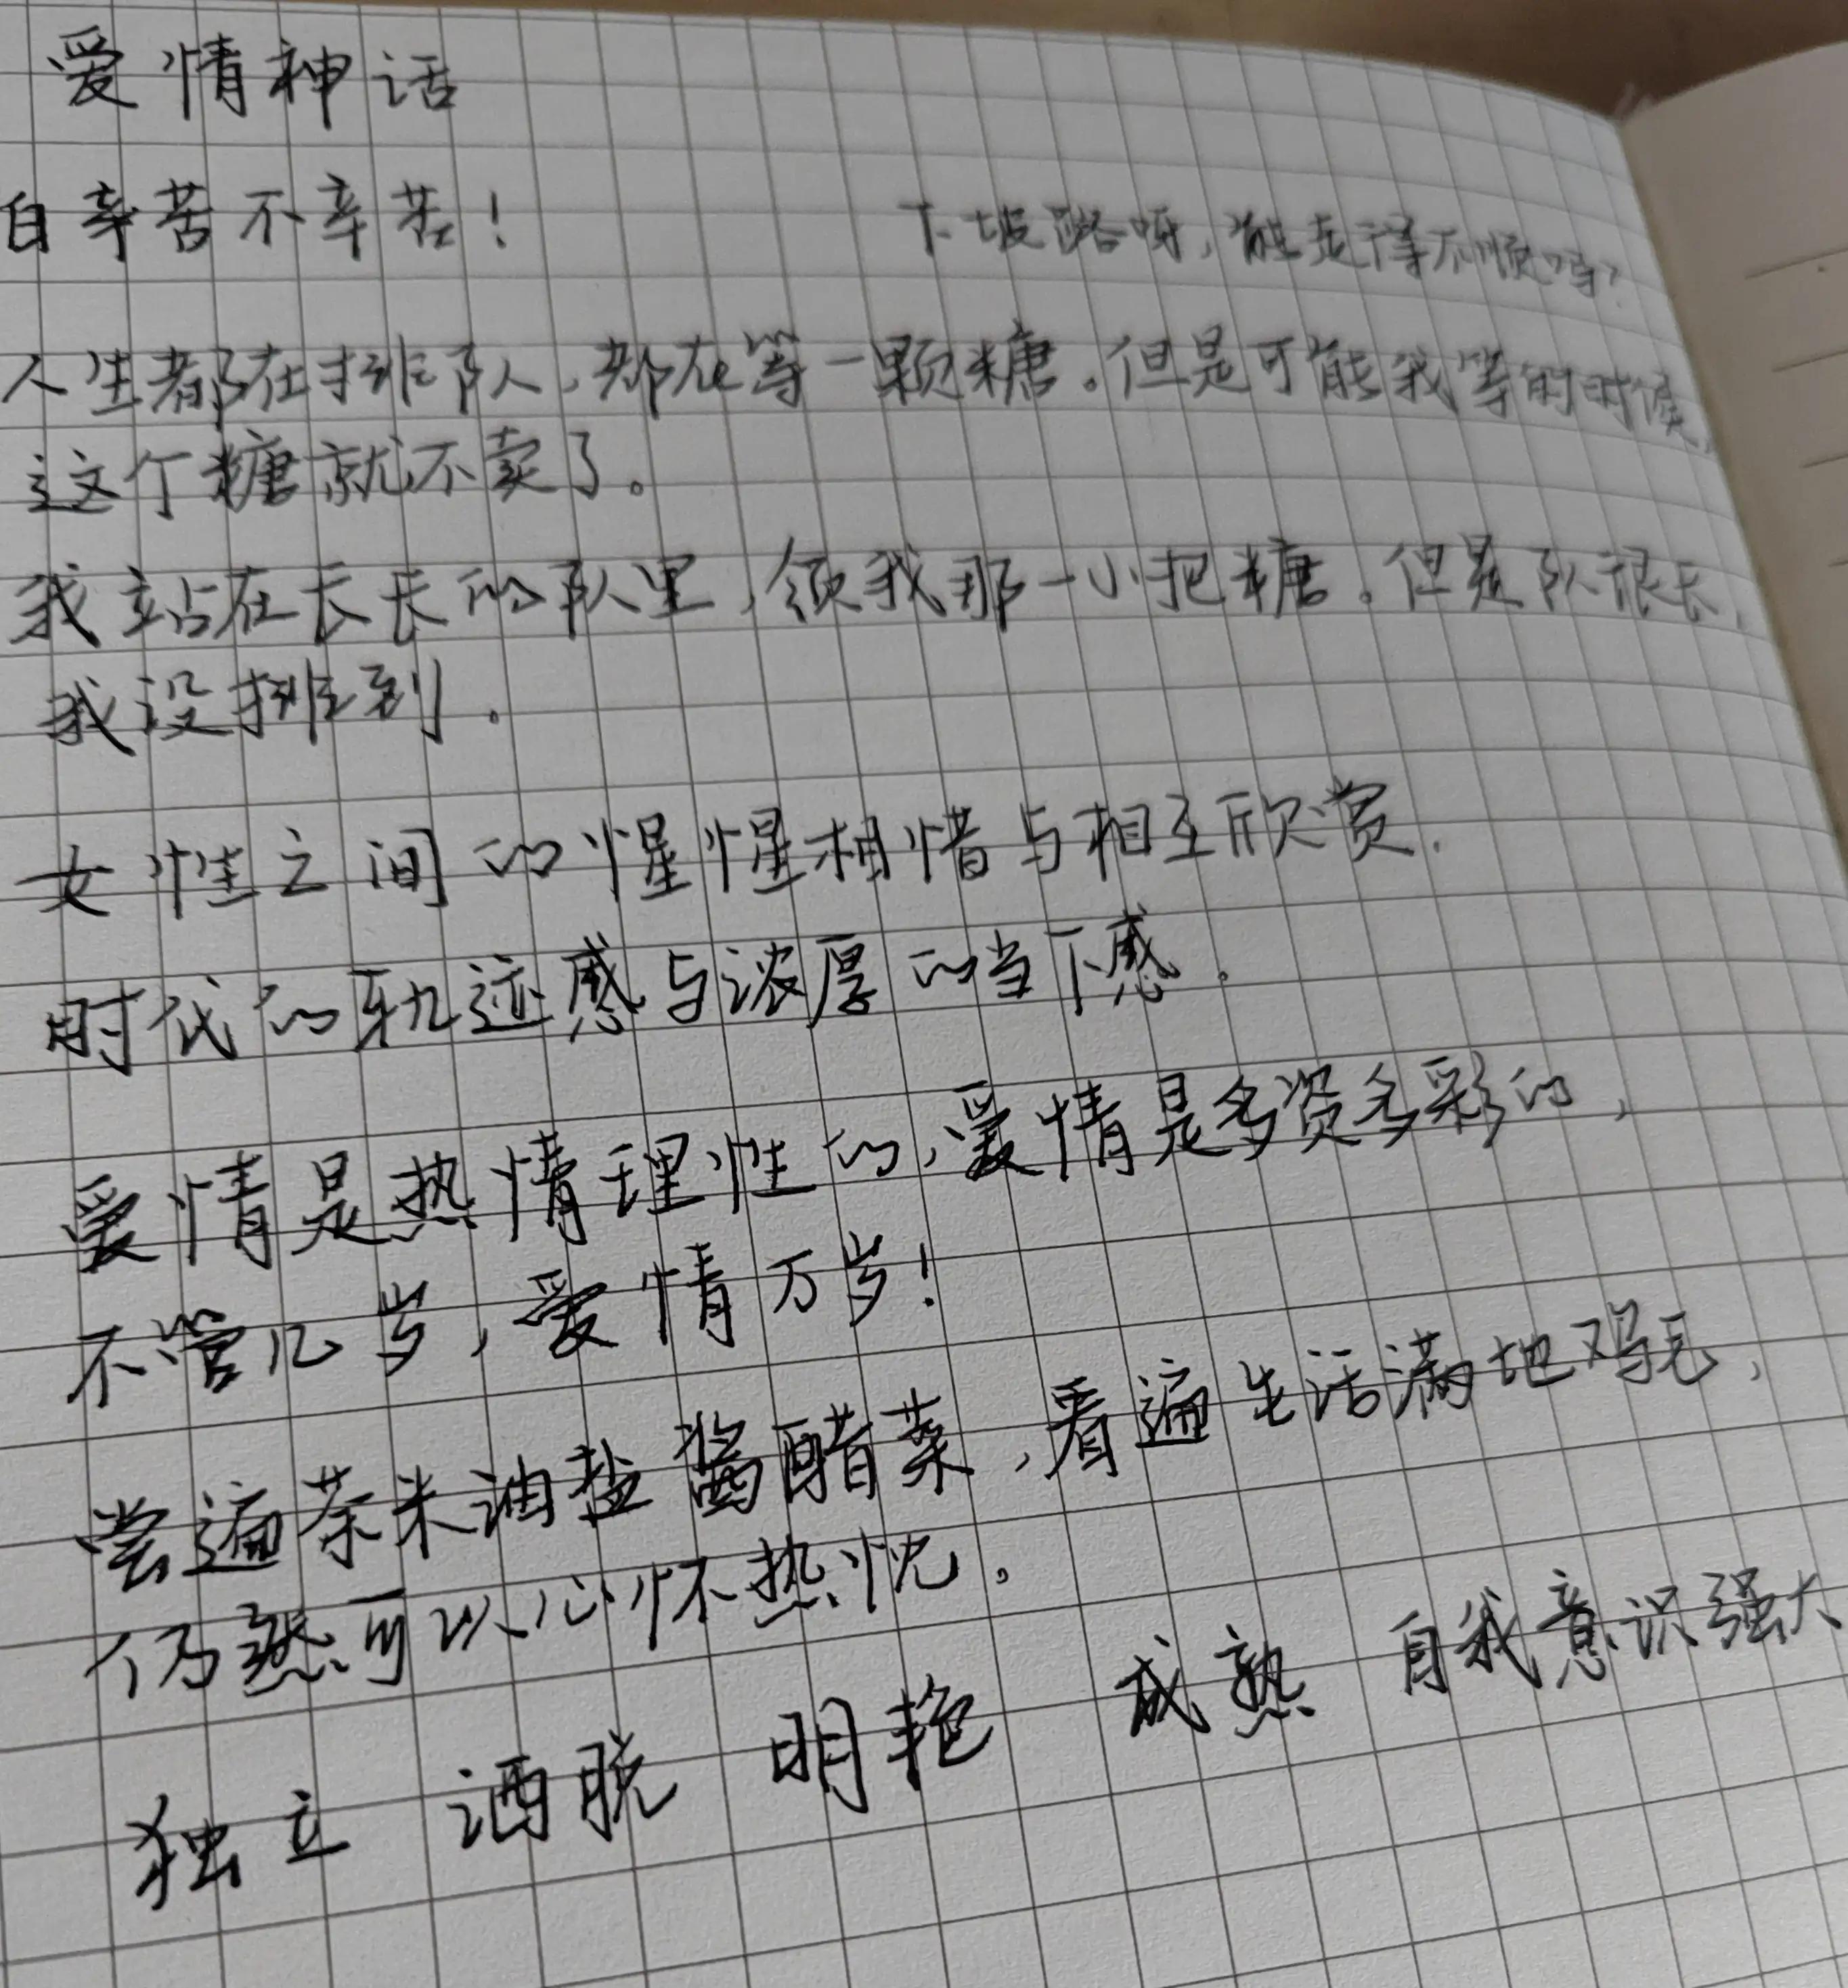 爱情神话
白辛苦不辛苦！ 下坡路呀，能走得不顺吗？
人生都在排队，都在等一颗糖。但是可能我等的时候，
这个糖就不卖了。
我站在长长的队里，领我那一小把糖。但是队很长，
我没排到。
女性之间的惺惺相惜与相互欣赏.
时代的轨迹感与浓厚的当下感。
爱情是热情理性的，爱情是多资多彩的，
不管几岁，爱情万岁！
尝遍茶米油盐酱醋菜，看遍生活满地鸡毛，
仍然可以心怀热忱。
独立 洒脱 明艳 成熟 自我意识强大